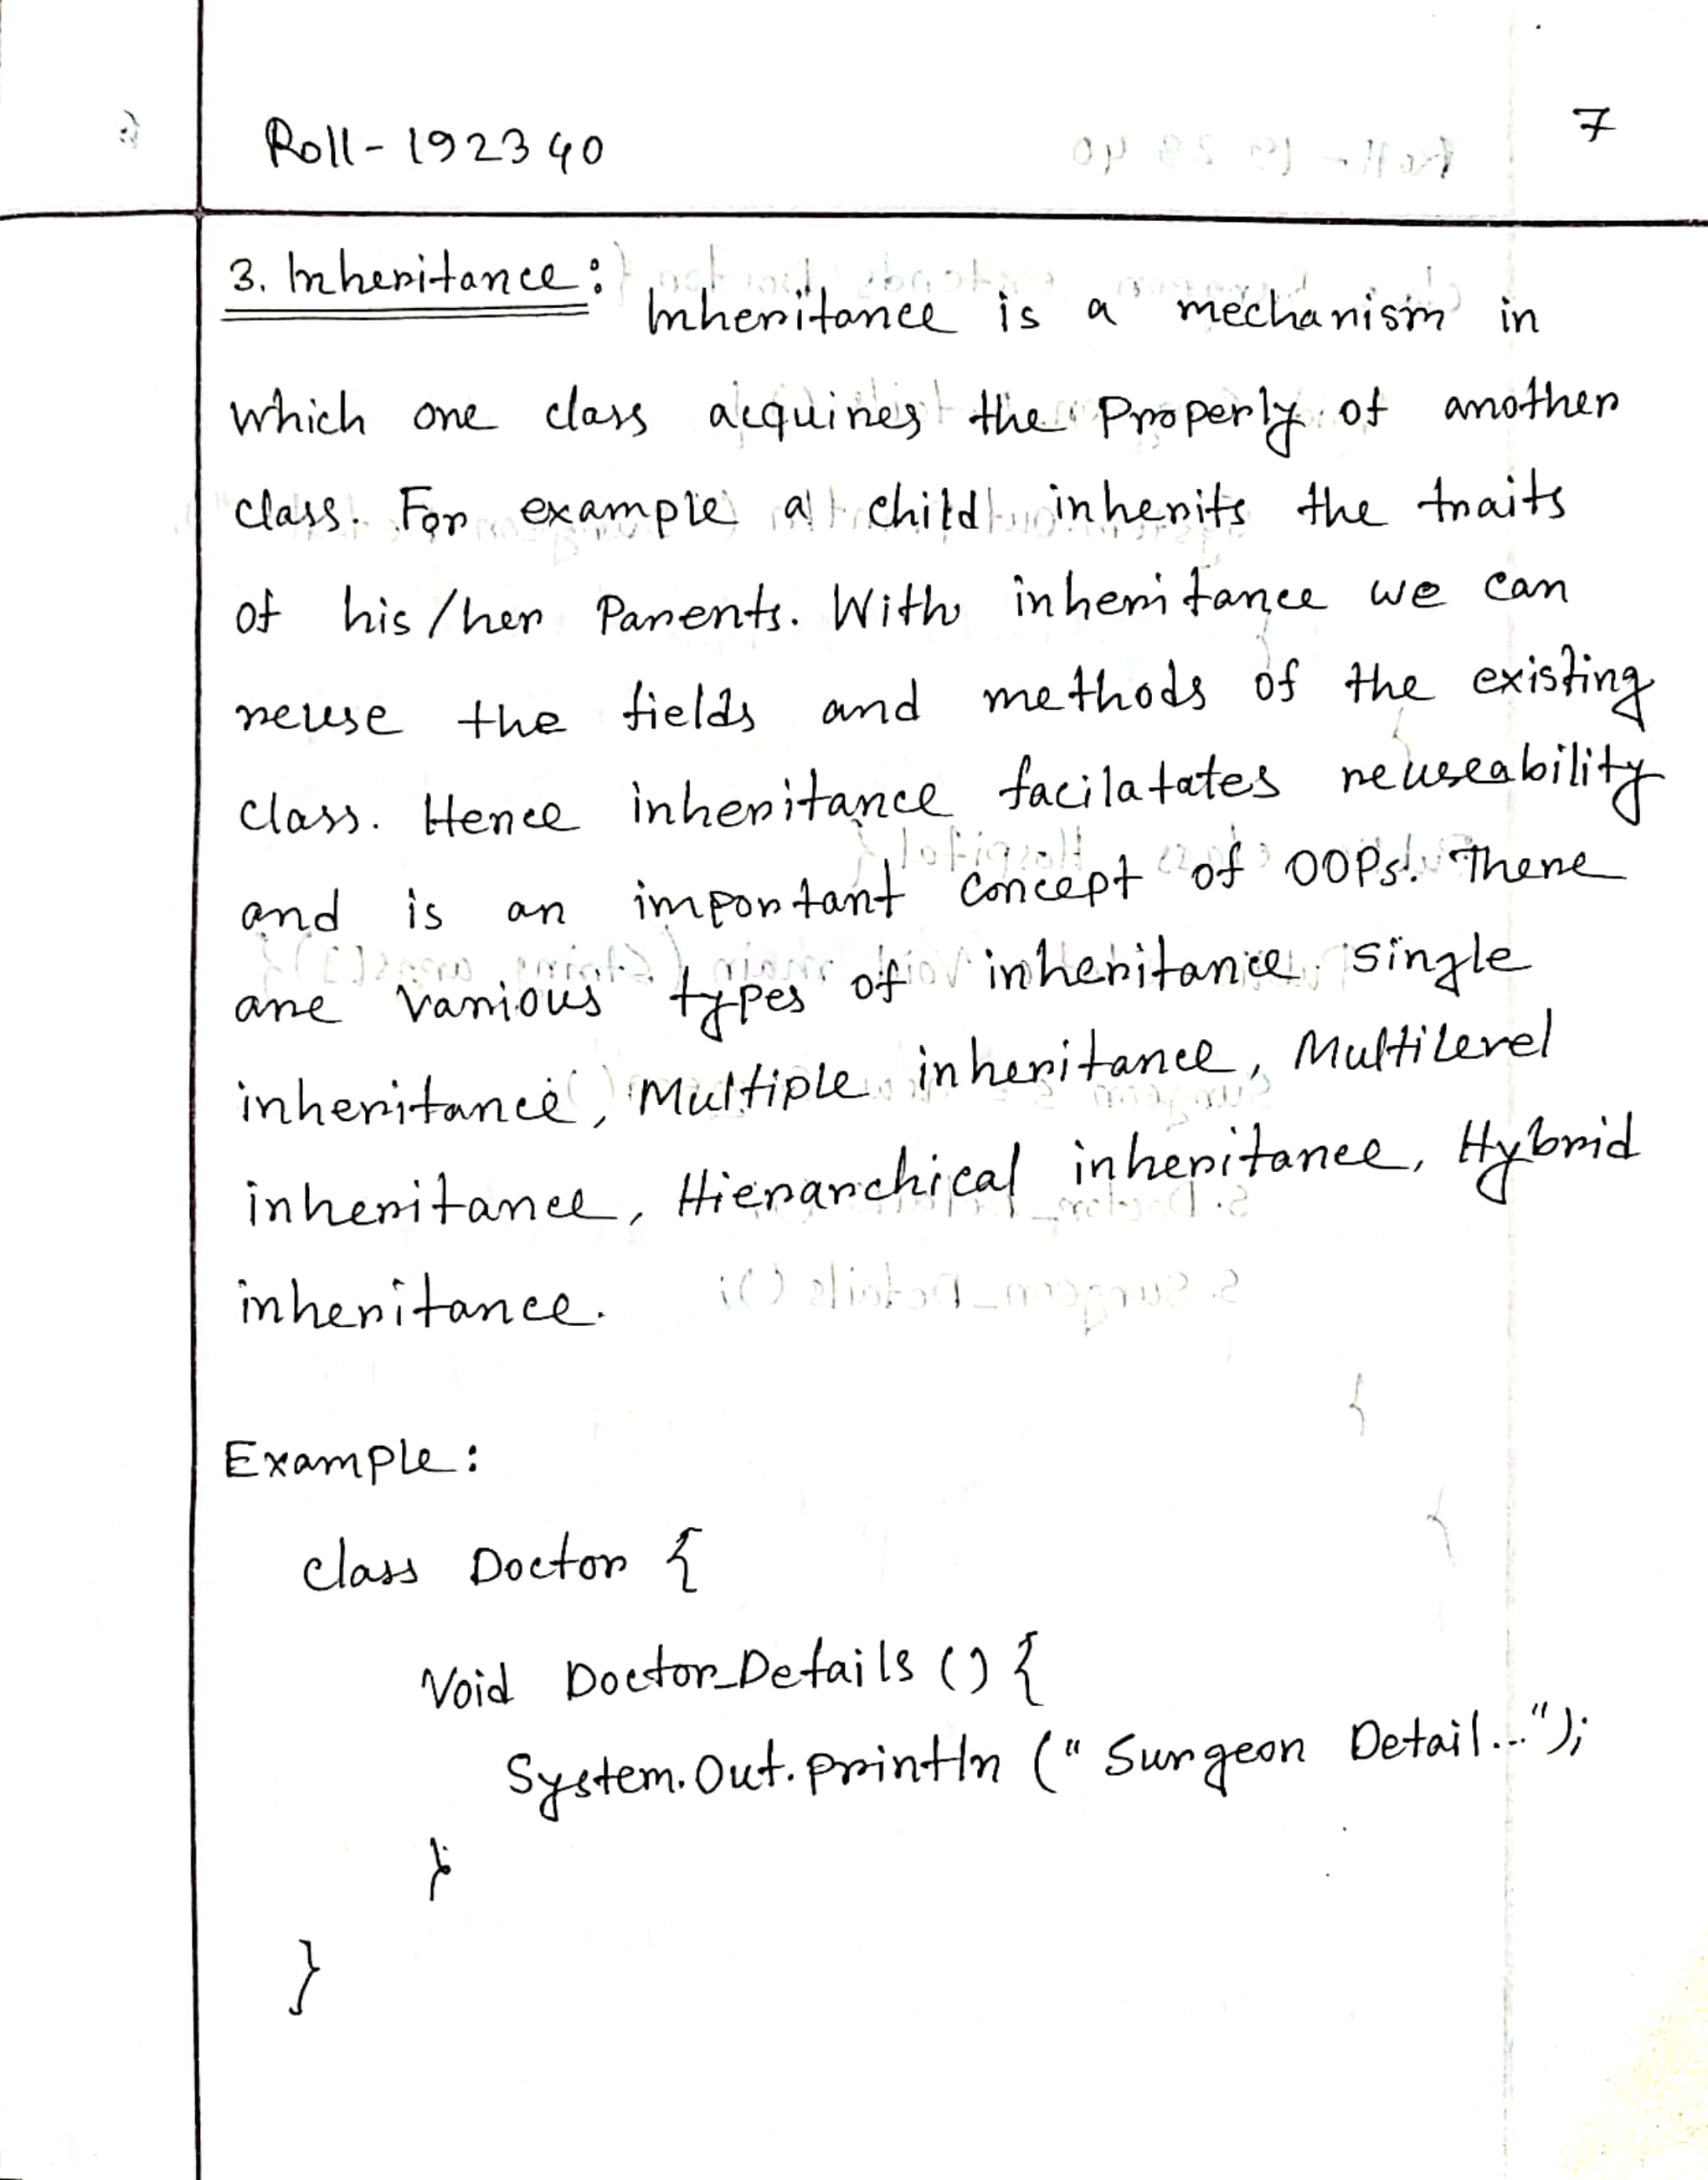 Roll-192340
7
3. Inheritance:
Inheritance is a mechanism in
which one class acquires the Property of another
class. For example a child inherits the traits
of his/her Parents. With inheritance we can
reuse the fields and methods of the existing
class. Hence inheritance facilatates reuseability
and is an important concept of OOPs. There
are various types of inheritance single
inheritance, Multiple inheritance, Multilevel
inheritance, Hierarchical inheritance, Hybrid
inheritance.
Example:
class Doctor {
Void Doctor_Details () {
System.Out.println ("Surgeon Detail...");
}
}